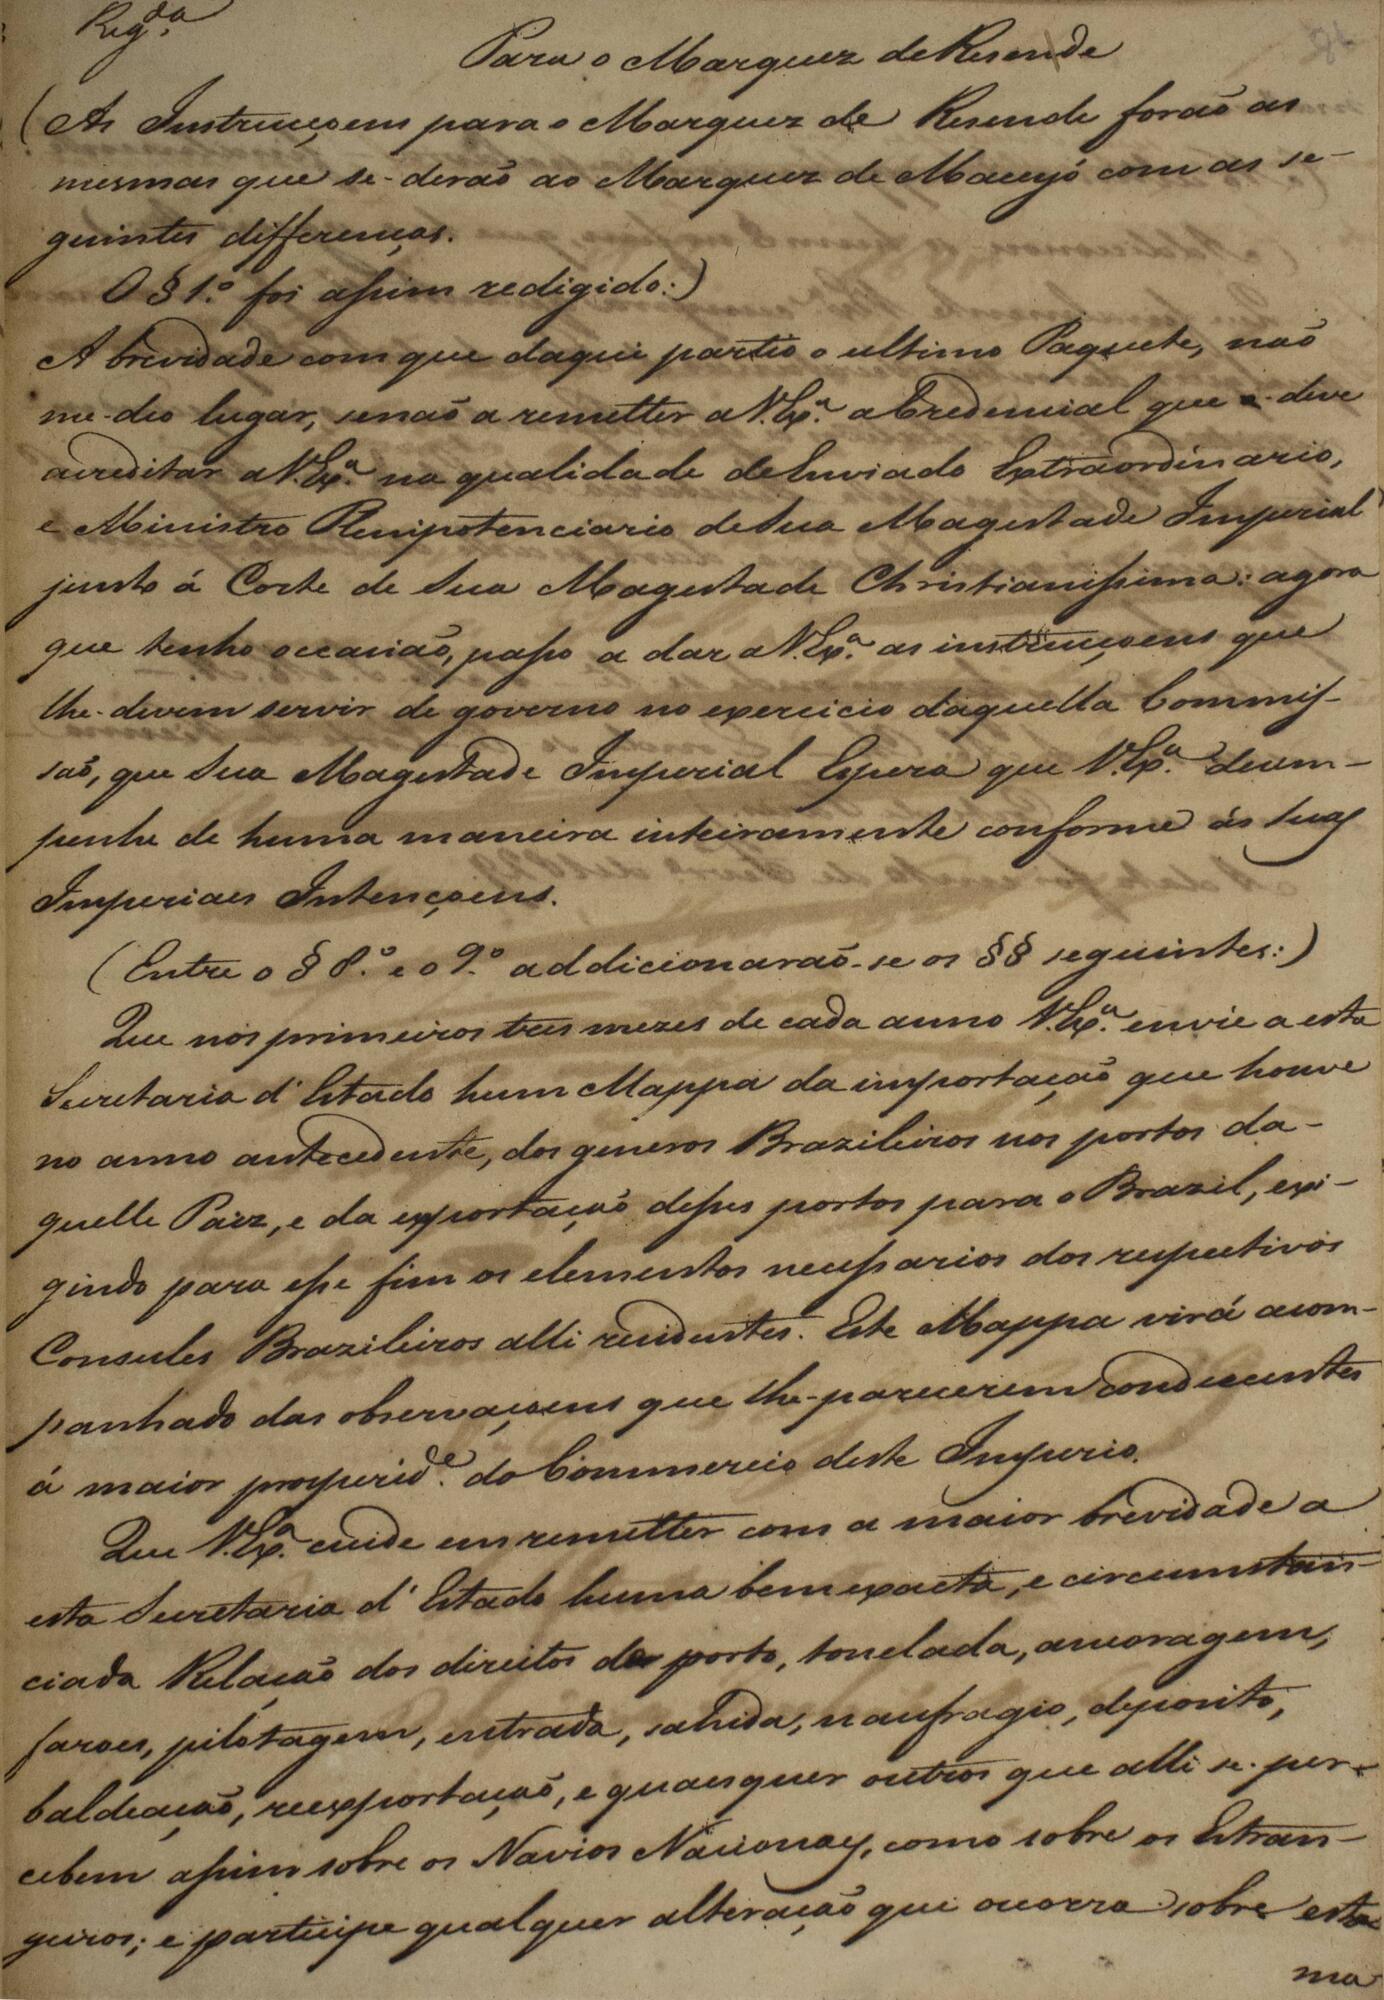 Reg.da
Para o Marquez de Resende
(As Instrucçoens para o Marquez de Resende forão as
mesmas que se-derão ao Marquez de Maceyó com as se-
guintes differenças.
O § 1.º foi assim redigido:)
A brevidade com que daqui partio o ultimo Paquete, não
me-deo lugar, senão a remetter a V. Ex.ª a Credencial que deve
acreditar a V. Ex.ª na qualidade de Enviado Extraordinario,
e Ministro Plenipotenciario de Sua Magestade Imperial
junto á Corte de Sua Magestade Christianissima: agora
que tenho occasião, passo a dar a V. Ex.ª as instrucçoens que
lhe-devem servir de governo no exercicio d'aquella Commis-
são, que Sua Magestade Imperial Espera que V. Ex.ª desem-
penhe de huma maneira inteiramente conforme ás Suas
Imperiaes Intençoens.
(Entre o § 8.º e o 9.º addicionarão-se os §§ seguintes:)
Que nos primeiros tres mezes de cada anno V. Ex.ª envie a esta
Secretaria d'Estado hum Mappa da importação que houve
no anno antecedente, dos generos Brazileiros nos portos da-
quelle Paiz, e da exportação desses portos para o Brazil, exi-
gindo para esse fim os elementos necessarios dos respectivos
Consules Brazileiros alli residentes. Este Mappa virá acom-
panhado das observaçoens que lhe-parecerem conducentes
á maior prosperid.e do Commercio deste Imperio.
Que V. Ex.ª cuide em remetter com a maior brevidade a
esta Secretaria d'Estado huma bem exacta, e circumstan-
ciada Relação dos direitos de porto, tonelada, ancoragem,
faroes, pilotagem, entrada, sahida, naufragio, deposito,
baldeação, reexportação, e quaesquer outros que alli se-per-
cebem assim sobre os Navios Nacionaes, como sobre os Estran-
geiros; e participe qualquer alteração que occorra sobre esta
ma